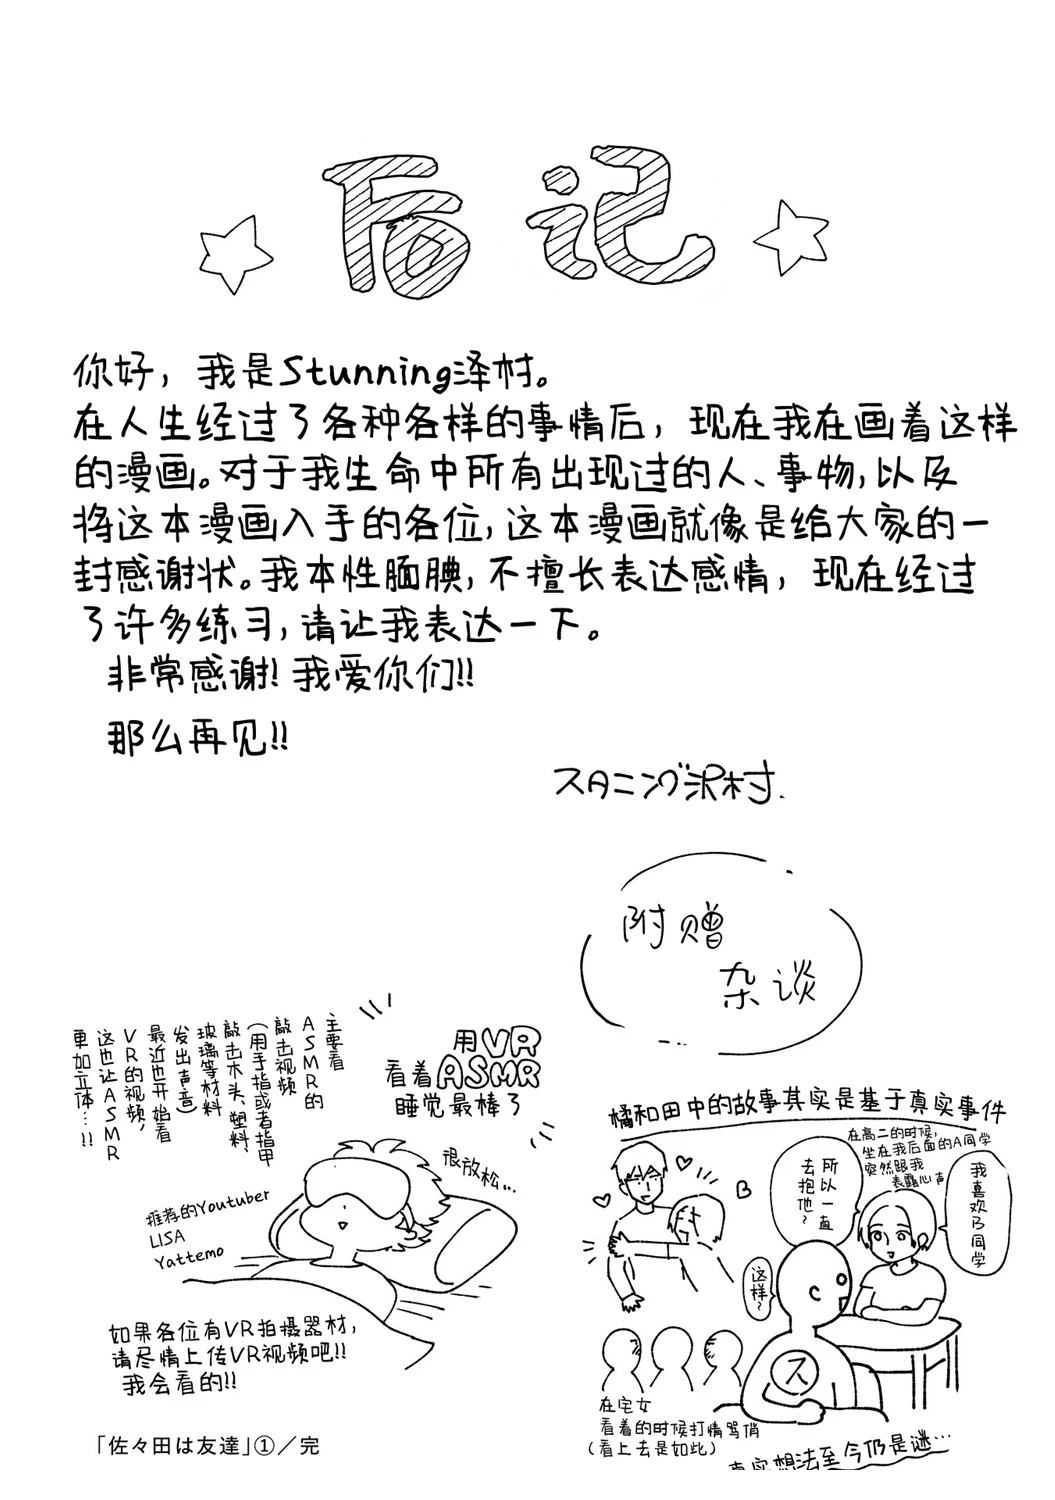 后记
你好，我是Stunning泽村。
在人生经过了各种各样的事情后，现在我在画着这样
的漫画。对于我生命中所有出现过的人、事物，以及
将这本漫画入手的各位，这本漫画就像是给大家的一
封感谢状。我本性腼腆，不擅长表达感情，现在经过
了许多练习，请让我表达一下。
非常感谢！我爱你们！！
那么再见！！
スタニング沢村.
附赠
杂谈
用VR
看着ASMR
睡觉最棒了
主要看
ASMR的
敲击视频
（用手指或者指甲
敲击木头、塑料、
玻璃等材料
发出声音）
最近也开始看
VR的视频，
这也让ASMR
更加立体…！！
很放松…
推荐的Youtuber
LISA
Yattemo
如果各位有VR拍摄器材，
请尽情上传VR视频吧！！
我会看的！！
橘和田中的故事其实是基于真实事件
在高二的时候，
坐在我后面的A同学
突然跟我
表露心声
我喜欢乃同学
所以一直
去抱他~
B
这样~
ス
在宅女
看着的时候打情骂俏
（看上去是如此）
真实想法至今仍是谜…
「佐々田は友達」①／完